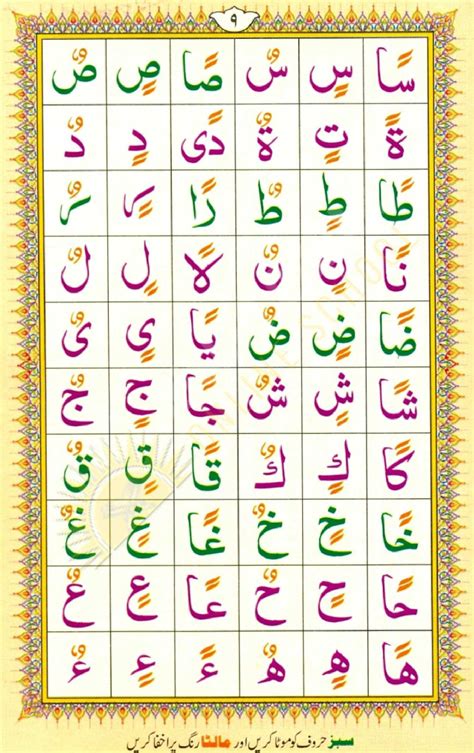 ۹
سًا سٍ سٌ صًا صٍ صٌ
ةً تٍ ةٌ دًى دٍ دٌ
طًا طٍ طٌ رًا رٍ رٌ
نًا نٍ نٌ لًا لٍ لٌ
ضًا ضٍ ضٌ يًا ىٍ ىٌ
شًا شٍ شٌ جًا جٍ جٌ
كًا كٍ كٌ قًا قٍ قٌ
خًا خٍ خٌ غًا غٍ غٌ
حًا حٍ حٌ عًا عٍ عٌ
هًا هٍ هٌ ءً ءٍ ءٌ
سبز حروف کو موٹا کریں اور مالٹا رنگ پر اخفا کریں